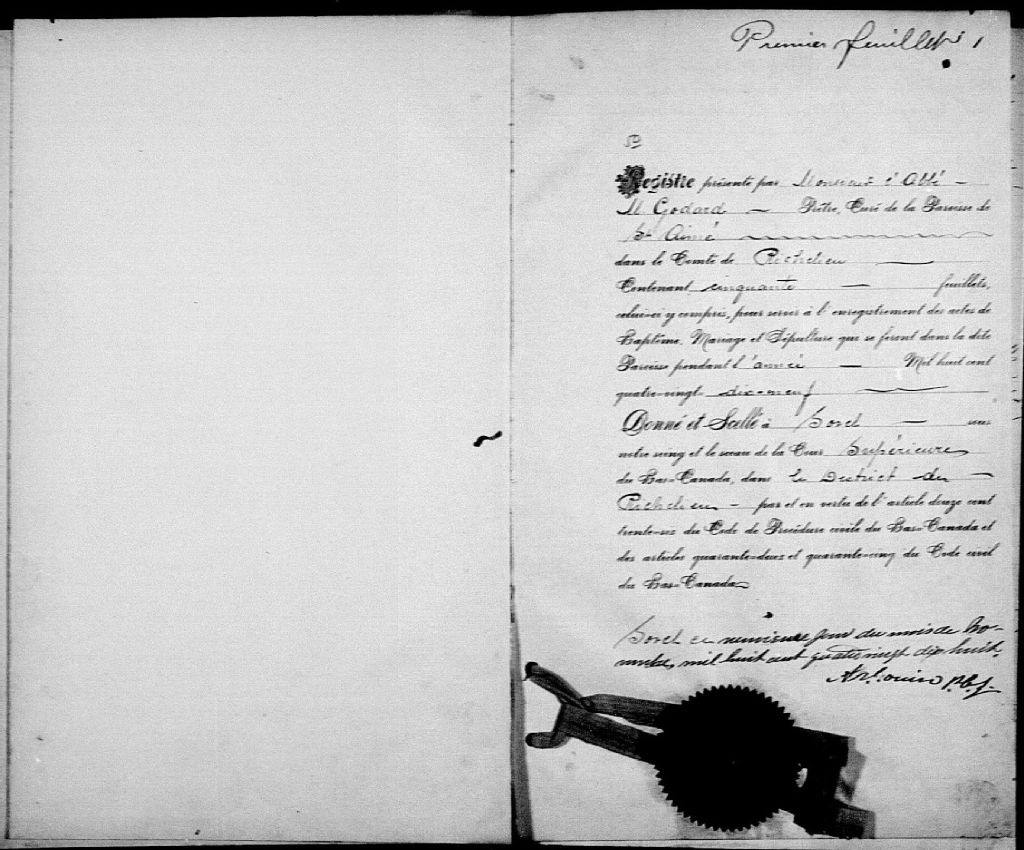 Premier feuillet 1
Registre présenté par Monsieur l'Abbé —
M Godard — Prêtre, Curé de la Paroisse de
St Aimé
dans le Comté de Richelieu —
Contenant cinquante — feuillets,
celui-ci y compris, pour servir à l'enregistrement des actes de
Baptême, Mariage et Sépulture que se feront dans la dite
Paroisse pendant l'année — Mil huit cent
quatre-vingt-dix-neuf
Donné et Scellé à Sorel — sous
notre seing et le sceau de la Cour Supérieure
du Bas-Canada, dans le District de —
Richelieu — par et en vertu de l'article douze cent
trente-six du Code de Procédure civile du Bas-Canada et
des articles quarante-deux et quarante-cinq du Code civil
du Bas-Canada
Sorel ce jour du mois de
mil huit cent quatre vingt dix huit.
P.C.S.